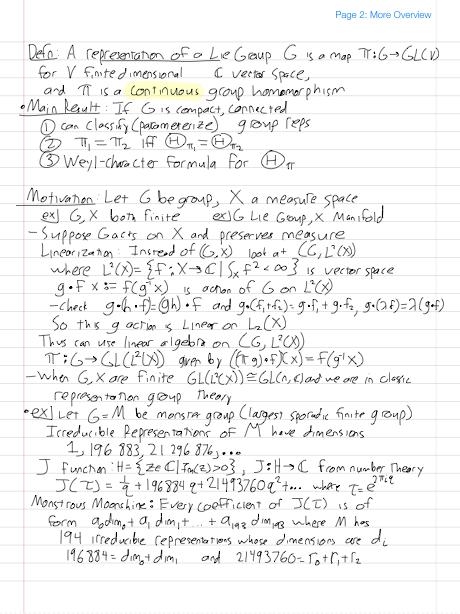 Page 2: More Overview
Defn: A representation of a Lie Group G is a map π:G→GL(V)
for V finite dimensional ℂ vector space,
and π is a continuous group homomorphism
•Main Result: If G is compact, connected
① can classify (parameterize) group reps
② π₁=π₂ iff Ⓗπ₁=Ⓗπ₂
③ Weyl-Character Formula for Ⓗπ
Motivation: Let G be group, X a measure space
ex] G,X both finite ex] G Lie Group, X Manifold
-Suppose G acts on X and preserves measure
Linearization: Instead of (G,X) look at (G,L²(X))
where L²(X)={f:X→ℂ|∫ₓf²<∞} is vector space
g•f x := f(g⁻¹x) is action of G on L²(X)
-check g•(h•f)=(gh)•f and g•(f₁+f₂)=g•f₁+g•f₂, g•(λf)=λ(g•f)
So this g action is Linear on L₂(X)
Thus can use linear algebra on (G,L²(X))
π:G→GL(L²(X)) given by ((πg)•f)(x)=f(g⁻¹x)
-When G,X are finite GL(L²(X))≅GL(n,ℂ) and we are in classic
representation group theory
•ex] Let G=M be monster group (largest sporadic finite group)
Irreducible Representations of M have dimensions
1, 196 883, 21 296 876, ...
J function: H={z∈ℂ|Im(z)>0}, J:H→ℂ from number theory
J(τ)=1/q+196884q+21493760q²+... where τ=e^2πiq
Monstrous Moonshine: Every coefficient of J(τ) is of
form a₀dim₀+a₁dim₁+...+a₁₉₃dim₁₉₃ where M has
194 irreducible representations whose dimensions are dᵢ
196884=dim₀+dim₁ and 21493760=r₀+r₁+r₂